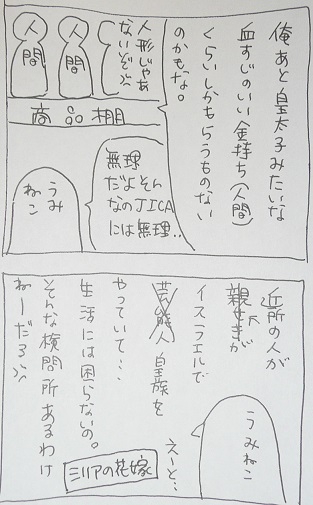 俺あと皇太子みたいな
血すじのいい金持ち(人間)
くらいしかもらうものない
のかもな。
人形じゃあ
ないぞ
人間
人間
商品棚
無理
だよそん
なのJICA
には無理..
うみ
ねこ
近所の人が
親せきが
イスラエルで
芸能人皇族を
やっていて…
生活には困らないの。
そんな検問所あるわけ
ねーだろ
うみねこ
えーと…
シリアの花嫁